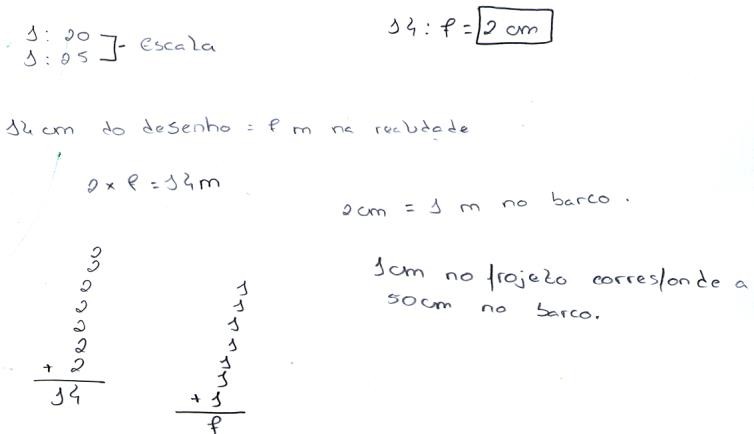 1 : 20
1 : 25 ]- Escala
14 : 7 = 2 cm
14 cm do desenho = 7 m na realidade
2 × 7 = 14m
2cm = 1 m no barco.
1cm no projeto corresponde a
50cm no barco.
2
2
2
2
2
2
+ 2
14
1
1
1
1
1
1
+ 1
7